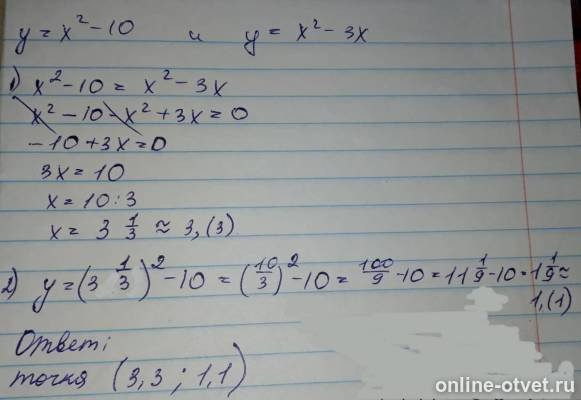 y = x² - 10 и y = x² - 3x
1) x² - 10 = x² - 3x
x² - 10 - x² + 3x = 0
- 10 + 3x = 0
3x = 10
x = 10 : 3
x = 3 1/3 ≈ 3,(3)
2) y = (3 1/3)² - 10 = (10/3)² - 10 = 100/9 - 10 = 11 1/9 - 10 = 1 1/9 ≈
1,(1)
Ответ:
точка (3,3 ; 1,1)
online-otvet.ru